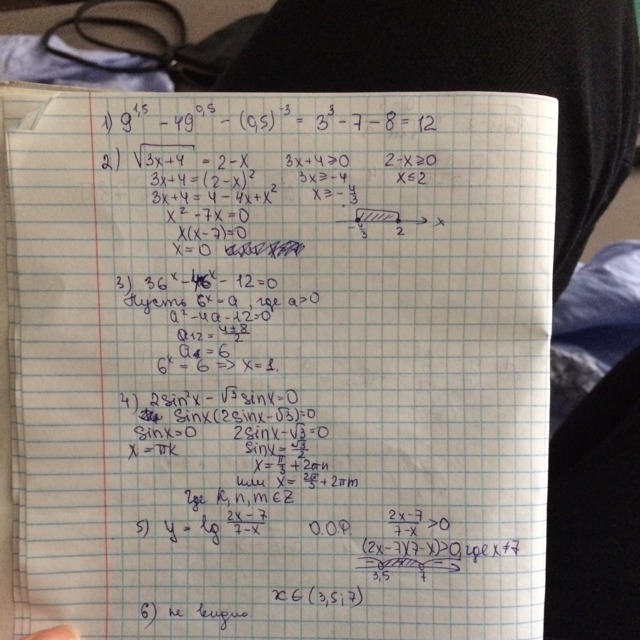 1) 9^1,5 - 49^0,5 - (0,5)^-3 = 3^3 - 7 - 8 = 12
2) √3x+4 = 2-x 3x+4≥0 2-x≥0
3x+4 = (2-x)^2 3x≥-4 x≤2
3x+4 = 4-4x+x^2 x≥-4/3
x^2-7x=0
x(x-7)=0
x=0
-4/3 2 x
3) 36^x - 4·6^x - 12=0
Пусть 6^x = a, где a>0
a^2-4a-12=0
a12 = 4±8/2
a1 = 6
6^x = 6 => x=1.
4) 2sin^2x - √3 sinx=0
sinx(2sinx-√3)=0
sinx=0 2sinx-√3=0
x=πk sinx=√3/2
x=π/3+2πn
или x=2π/3+2πm
где k,n,m∈Z
5) y = lg 2x-7/7-x О.О.Р. 2x-7/7-x >0
(2x-7)(7-x)>0, где x≠7
3,5 7
x∈(3,5;7)
6) не видно